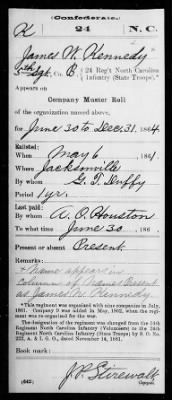 (Confederate.)
K 24 N. C.
James W. Kennedy
5th Sgt., Co. B, 24 Reg't North Carolina
Infantry (State Troops).*
Appears on
Company Muster Roll
of the organization named above,
for June 30 to Dec. 31, 1864.
Enlisted:
When May 6, 1861.
Where Jacksonville
By whom G. T. Duffy
Period 1 yr.
Last paid:
By whom A. O. Houston
To what time June 30, 186
Present or absent Present.
Remarks:
+ Name appears in
column of Names Present
as James M. Kennedy.
*This regiment was organized with nine companies in July,
1861. Company
The designation of the regiment was changed from the 14th
Regiment North Carolina Infantry (Volunteers) to the 24th
Regiment North Carolina Infantry (State Troops) by S. O. No.
222, A. & I. G. O., dated November 14, 1861.
Book mark:
J. P. Stirewalt
(642) Copyist.